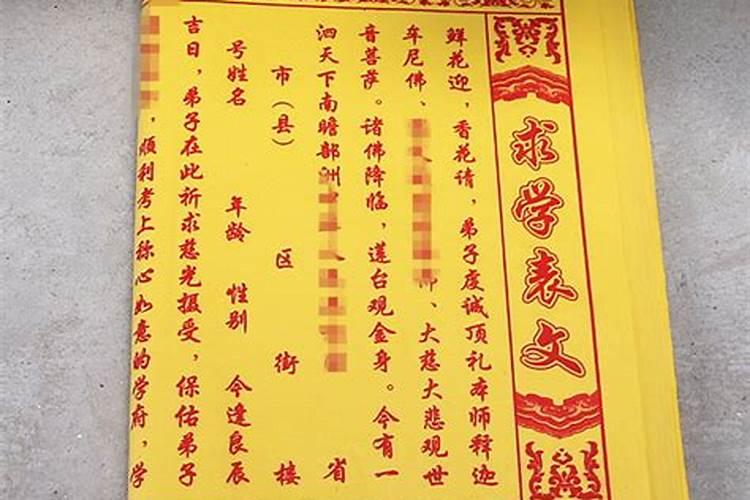 求学表文
鲜花迎，香花请，弟子虔诚顶礼本师释迦
牟尼佛、佛、大慈大悲观世
音菩萨。诸佛降临，莲台观金身。今有一
泗天下南瞻部洲省
市（县）区街楼
号姓名年龄性别今逢良辰
吉日，弟子在此祈求慈光摄受，保佑弟子
，顺利考上称心如意的学府，学